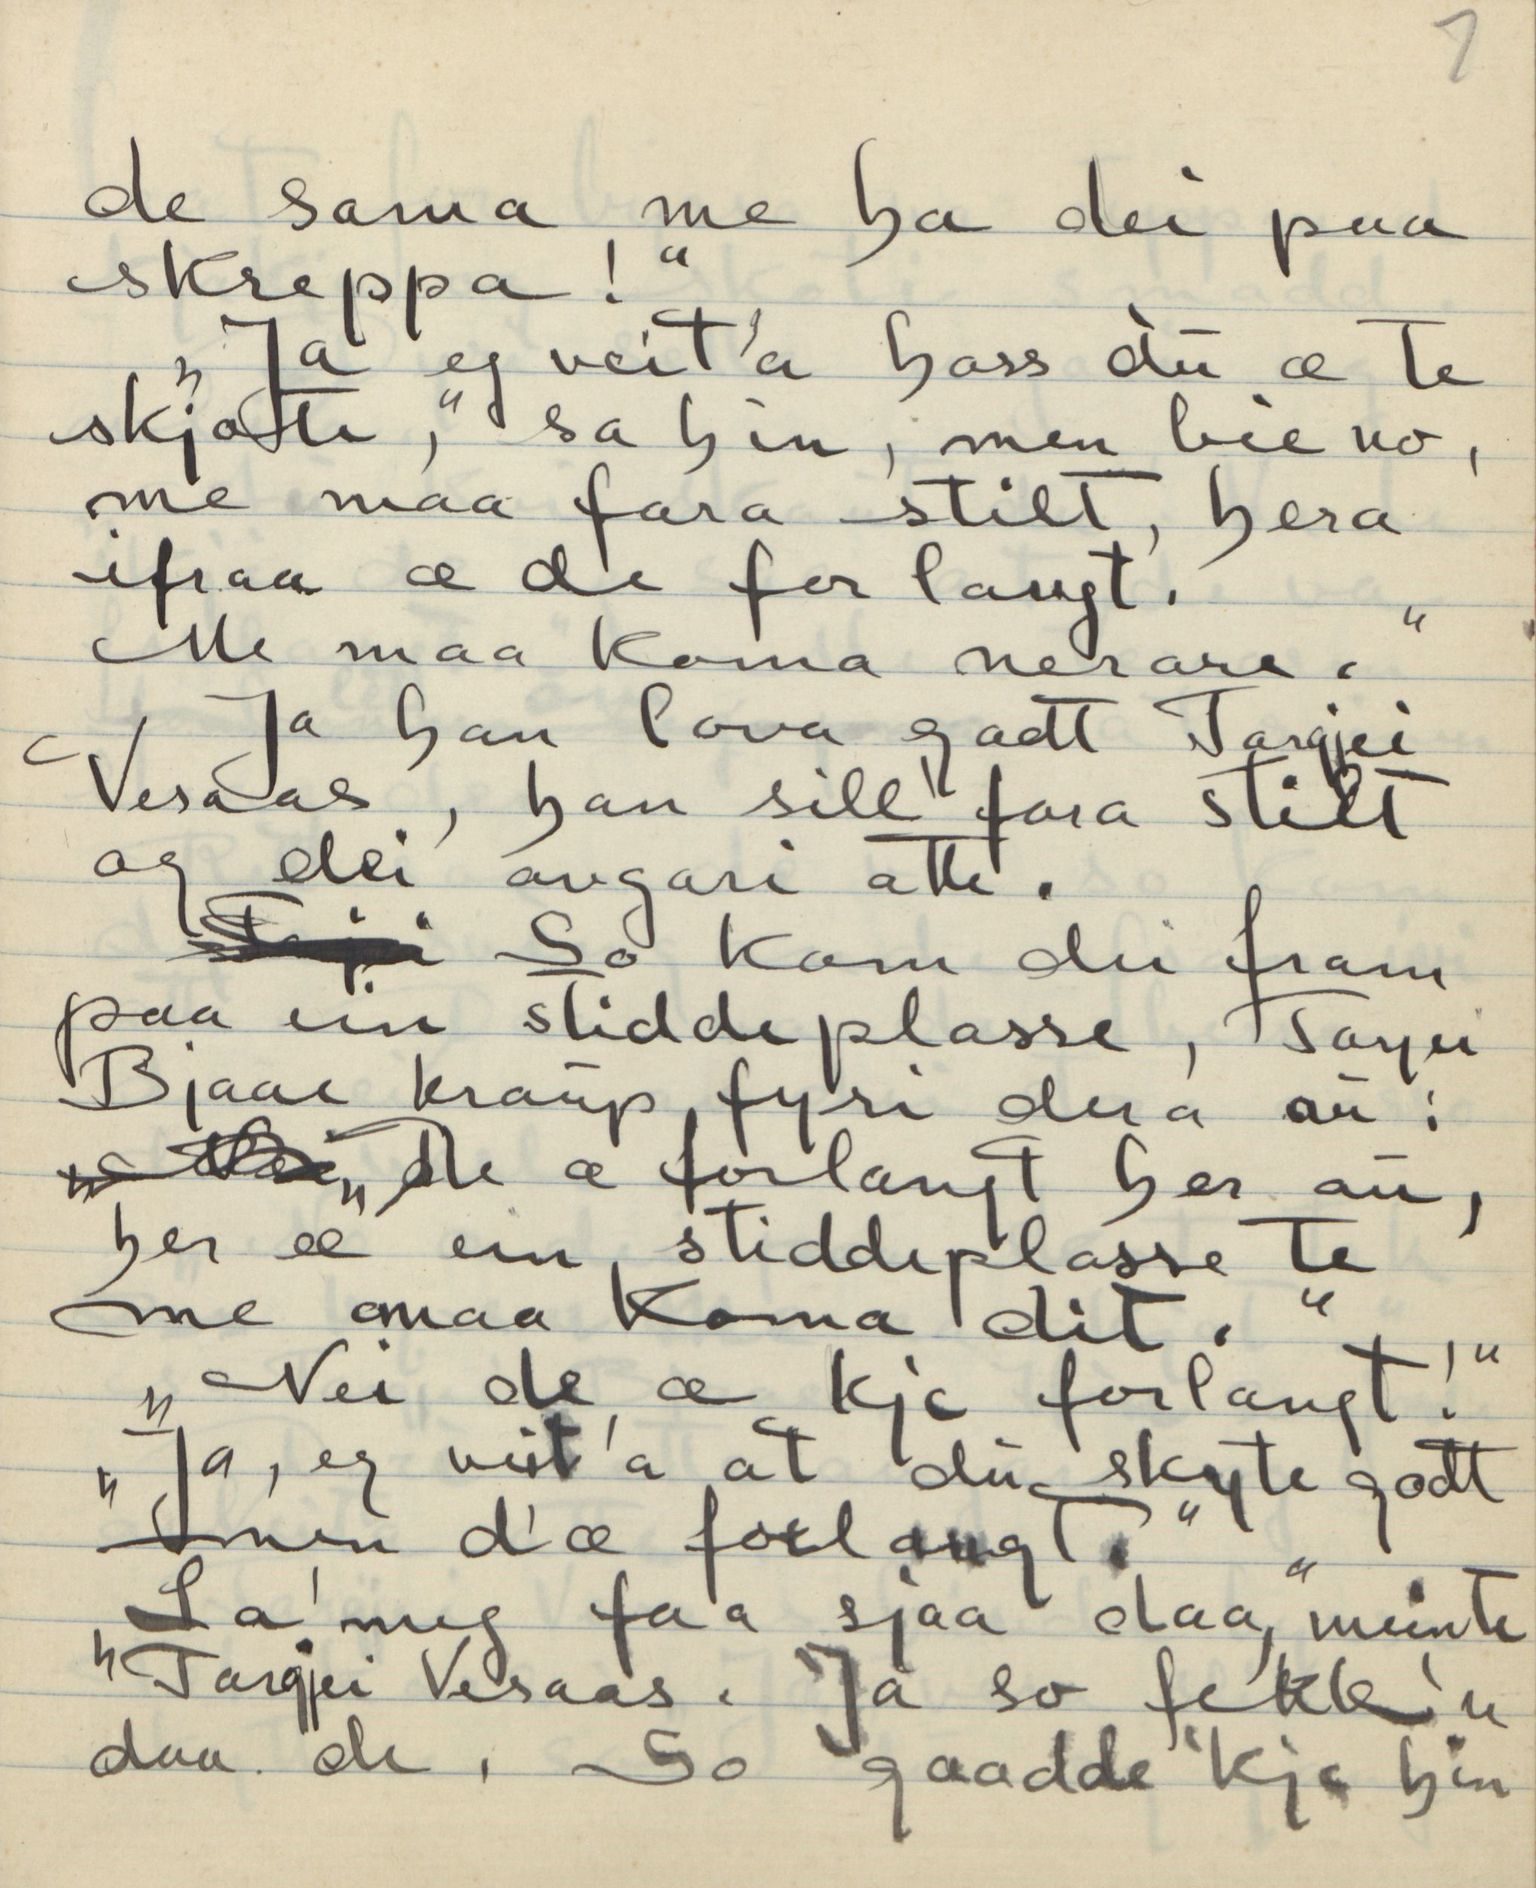 7
de sama me ha dei paa
skreppa!“
„Ja eg veit'a hoss du æ te
skjotte,“ sa hin, men bie no,
me maa fara stilt, hera
ifraa æ de for langt.
Me maa koma nerare.“
Ja han lova godt Targjei
Vesaas, han sill' fara stilt
og dei angari atte.
So kom dei fram
paa ein stiddeplasse, Tarjei
Bjaae kraup fyri dera au:
„De æ forlangt her au,
her æ ein stiddeplasse te
me maa koma dit.“
„Nei de æ kje forlangt!“
„Ja, eg veit'a at du skyte godt
men d'æ forlangt.“
„La' meg faa sjaa daa,“ meinte
Targjei Vesaas. Ja so fekk'n
daa de. So gaadde 'kje hin